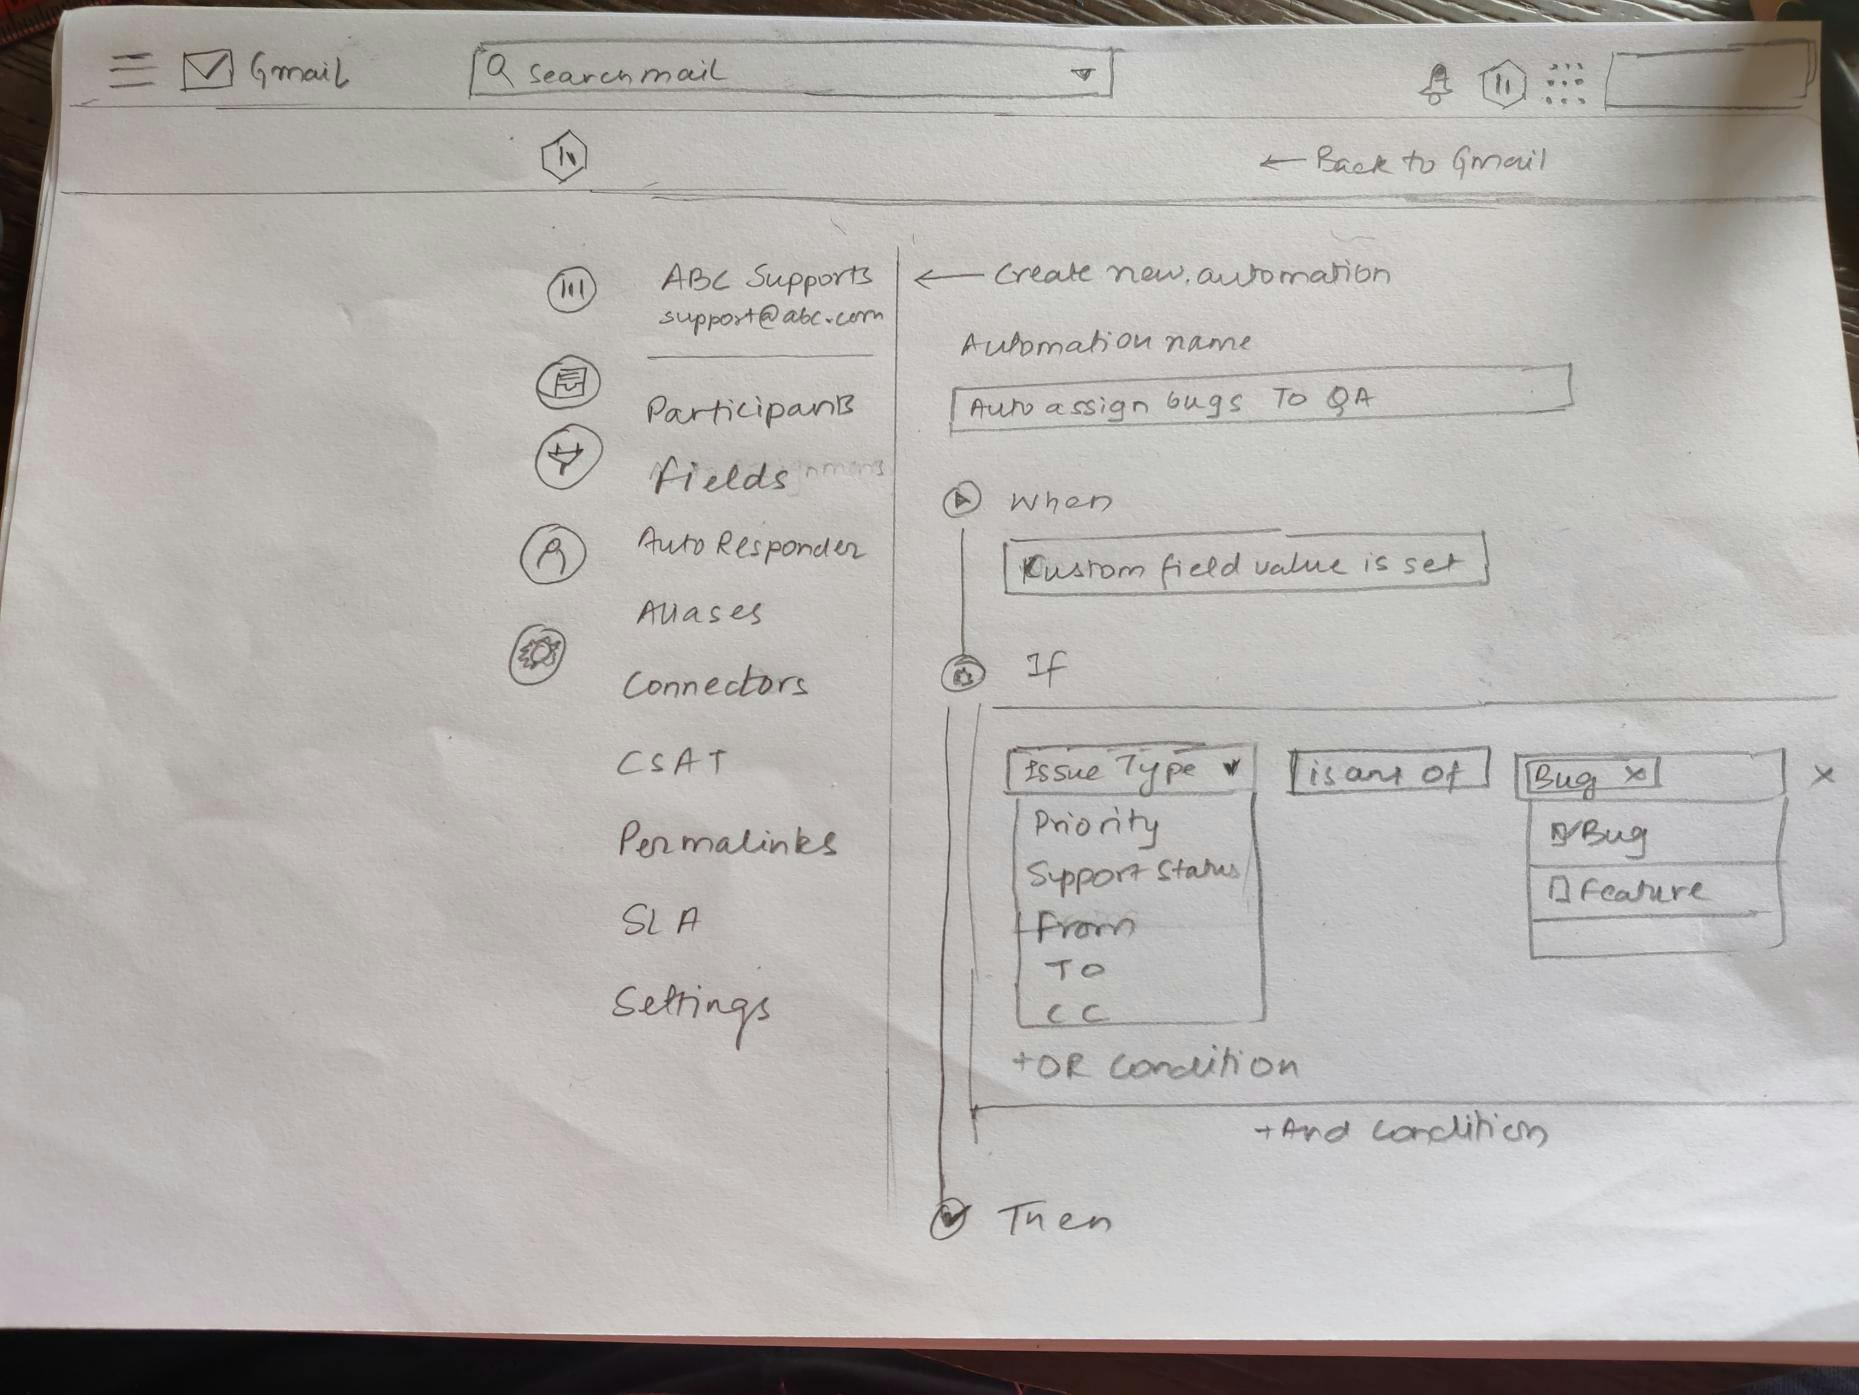 Gmail
Search mail
← Back to Gmail
ABC Supports
support@abc.com
Participants
Fields
Auto Responder
Aliases
Connectors
CSAT
Permalinks
SLA
Settings
← Create new automation
Automation name
Auto assign bugs To QA
When
Custom field value is set
If
Issue Type
is any of
Bug x
x
Priority
Support Status
From
To
CC
Bug
Feature
+OR Condition
+And Condition
Then